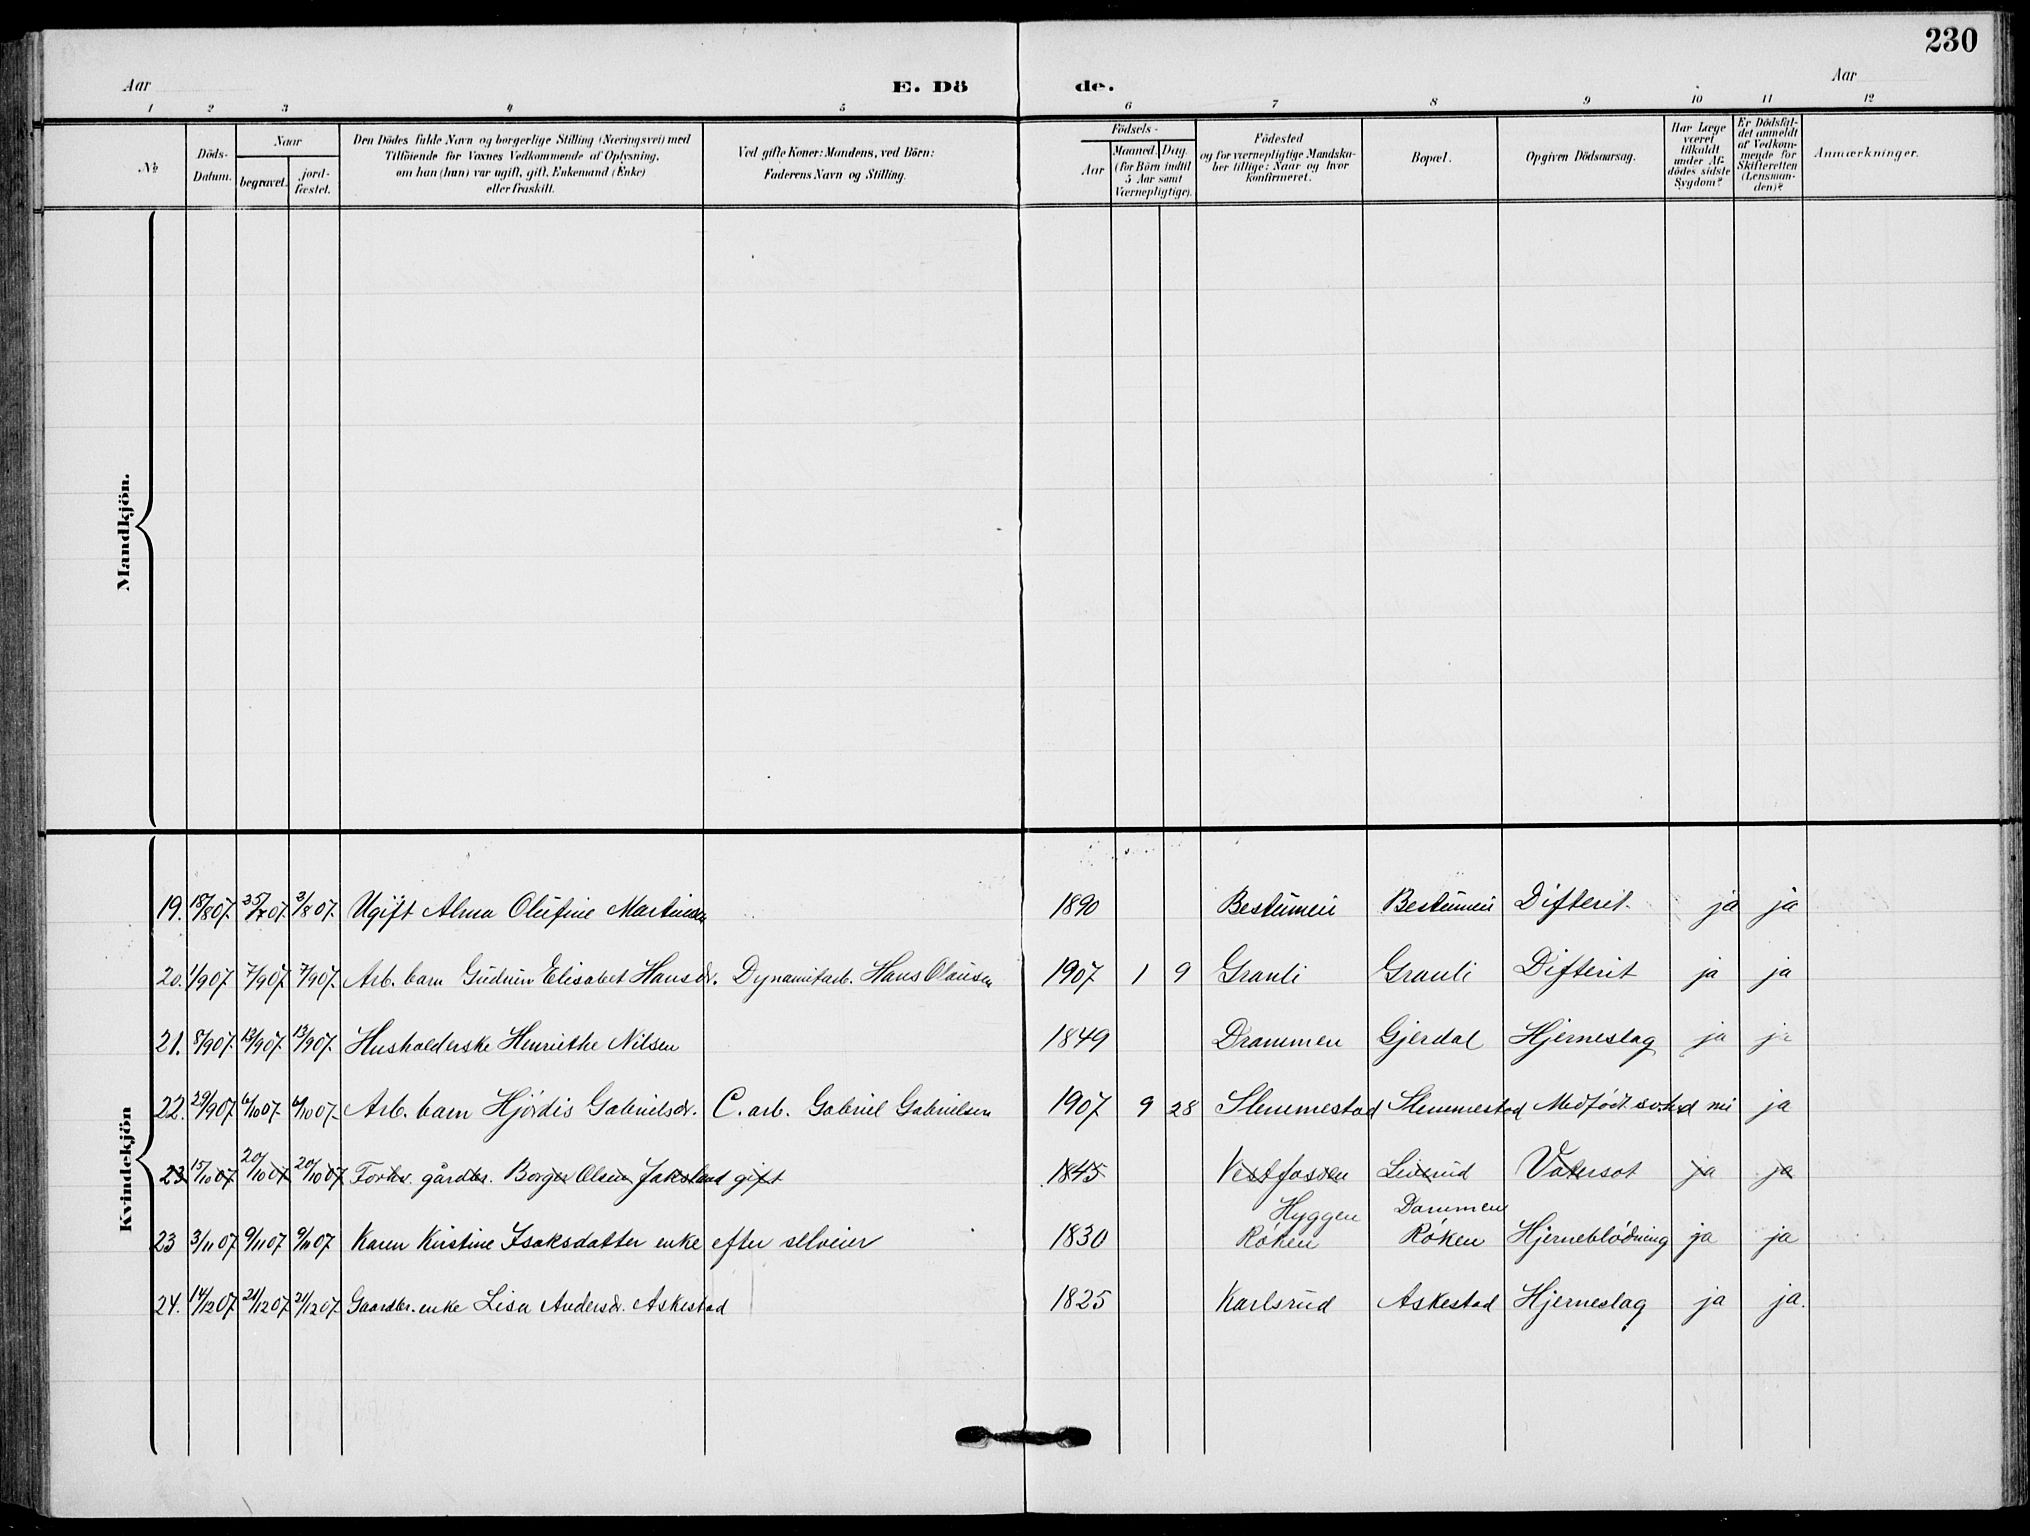 230
Aar
E. Dö
de.
Aar
1 2 3 4 5 6 7 8 9 10 11 12
No
Döds-
Datum.
Naar
begravet.
jord-
fæstet.
Den Dödes fulde Navn og borgerlige Stilling (Næringsvei) med
Tilföiende for Voxnes Vedkommende af Oplysning,
om han (hun) var ugift, gift, Enkemand (Enke)
eller fraskilt.
Ved gifte Koner: Mandens, ved Börn:
Faderens Navn og Stilling.
Födsels-
Aar
Maaned. Dag.
(for Börn indtil
5 Aar samt
Værnepligtige).
Födested
og for værnepligtige Mandska-
ber tillige: Naar og hvor
konfirmeret.
Bopæl.
Opgiven Dödsaarsag.
Har Læge
været
tilkaldt
under Af-
dödes sidste
Sygdom?
Er Dödsfal-
det anmeldt
af Vedkom-
mende for
Skifteretten
(Lensman-
den)?
Anmærkninger.
Mandkjön.
Kvindekjön
19. 18/8 07. 07. 3/8 07. Ugift Alma Olufine Martinsen 1890 Bestumeii Bestumeii Difterit. ja ja
20. 1/9 07. 7/9 07. 7/9 07. Arb. barn Gudrun Elisabet Hansdr. Dynamitarb. Hans Olausen 1907 1 9 Granli Granli Difterit ja ja
21. 8/9 07. 13/9 07. 13/9 07. Husholderske Henriethe Nilsen 1849 Drammen Gjerdal Hjerneslag ja ja
22. 29/9 07. 6/10 07. 6/10 07. Arb. barn Hjördis Gabrielsdr. C. arb. Gabriel Gabrielsen 1907 9 28 Slemmestad Slemmestad Medfödt svakhed nei ja
23 15/10 07 20/10 07 20/10 07 Forhv. gårdbr. Borger Olsen Jaksland gift 1845 Vestfossen Leirud Vatersot ja ja
Hyggen Dammen
23 3/11 07 9/11 07 9/11 07 Karen Kirstine Isaksdatter enke efter selveier 1830 Röken Röken Hjerneblödning ja ja
24. 14/12 07. 21/12 07. 21/12 07. Gaardbr. enke Lisa Andersdr. Askestad 1825 Karlsrud Askestad Hjerneslag ja ja.